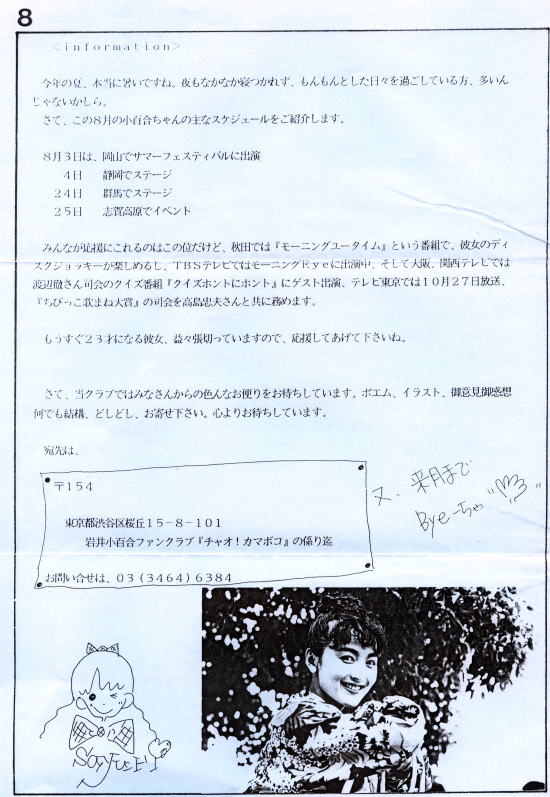 8
<information>
今年の夏、本当に暑いですね。夜もなかなか寝つかれず、もんもんとした日々を過ごしている方、多いん
じゃないかしら。
さて、この8月の小百合ちゃんの主なスケジュールをご紹介します。
8月3日は、岡山でサマーフェスティバルに出演
4日　静岡でステージ
24日　群馬でステージ
25日　志賀高原でイベント
みんなが応援にこれるのはこの位だけど、秋田では『モーニングユータイム』という番組で、彼女のディ
スクジョッキーが楽しめるし、TBSテレビではモーニングEyeに出演中、そして大阪、関西テレビでは
渡辺徹さん司会のクイズ番組『クイズホントにホント』にゲスト出演、テレビ東京では10月27日放送、
『ちびっこ歌まね大賞』の司会を高島忠夫さんと共に務めます。
もうすぐ23才になる彼女、益々張切っていますので、応援してあげて下さいね。
さて、当クラブではみなさんからの色んなお便りをお待ちしています。ポエム、イラスト、御意見御感想
何でも結構、どしどし、お寄せ下さい。心よりお待ちしています。
宛先は、
〒154
東京都渋谷区桜丘15-8-101
岩井小百合ファンクラブ『チャオ!カマボコ』の係り迄
お問い合せは、03(3464)6384
又、来月まで
Bye-ちゃ